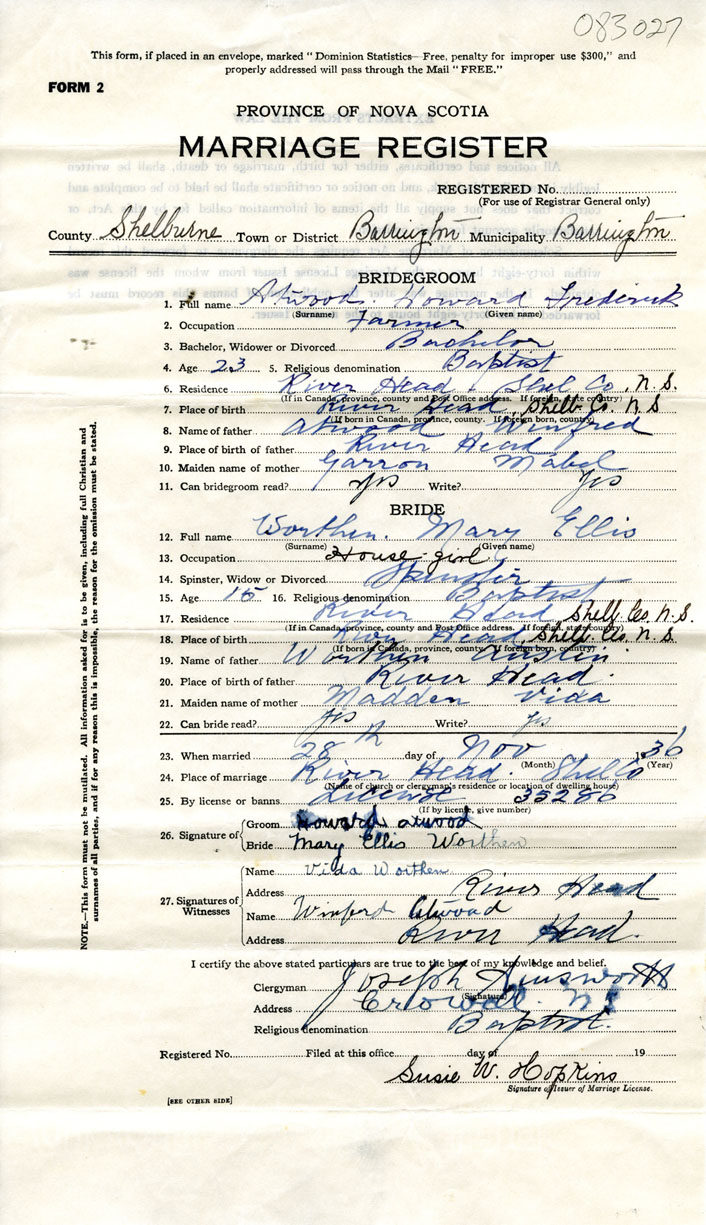 083027
This form, if placed in an envelope, marked "Dominion Statistics—Free, penalty for improper use $300," and
properly addressed will pass through the Mail "FREE."
FORM 2
PROVINCE OF NOVA SCOTIA
MARRIAGE REGISTER
REGISTERED No.
(For use of Registrar General only)
County Shelburne Town or District Barrington Municipality Barrington
BRIDEGROOM
1. Full name Atwood. Howard Frederick
(Surname) (Given name)
2. Occupation Farmer
3. Bachelor, Widower or Divorced Bachelor
4. Age 23 5. Religious denomination Baptist
6. Residence River Head, Shel Co, N.S.
(If in Canada, province, county and Post Office address. If foreign, state country)
7. Place of birth River Head, Shelb. Co. N S
(If born in Canada, province, county. If foreign born, country)
8. Name of father Atwood Winfred
9. Place of birth of father River Head
10. Maiden name of mother Garron Mabel
11. Can bridegroom read? Yes Write? Yes
BRIDE
12. Full name Worthen. Mary Ellis
(Surname) (Given name)
13. Occupation House-girl
14. Spinster, Widow or Divorced Spinster
15. Age 15 16. Religious denomination Baptist
17. Residence River Head Shelb Co. N.S.
(If in Canada, province, county and Post Office address. If foreign, state country)
18. Place of birth River Head, Shelb. Co. N.S
(If born in Canada, province, county. If foreign born, country)
19. Name of father Worthen Austin
20. Place of birth of father River Head.
21. Maiden name of mother Madden Vida
22. Can bride read? Yes Write? Yes
23. When married 28th day of Nov 1936
(Month) (Year)
24. Place of marriage River Head. Shel Co
(Name of church or clergyman's residence or location of dwelling house)
25. By license or banns License 35286
(If by license, give number)
26. Signature of Groom Howard atwood
Bride Mary Ellis Worthen
27. Signatures of Witnesses
Name Vida Worthen
Address River Head
Name Winford Atwood
Address River Head.
I certify the above stated particulars are true to the best of my knowledge and belief.
Clergyman Joseph Ainsworth
(Signature)
Address N S
Religious denomination Baptist.
Registered No. Filed at this office day of 19
Susie W. Hopkins
Signature of Issuer of Marriage License.
[SEE OTHER SIDE]
NOTE.—This form must not be mutilated. All information asked for is to be given, including full Christian and
surnames of all parties, and if for any reason this is impossible, the reason for the omission must be stated.